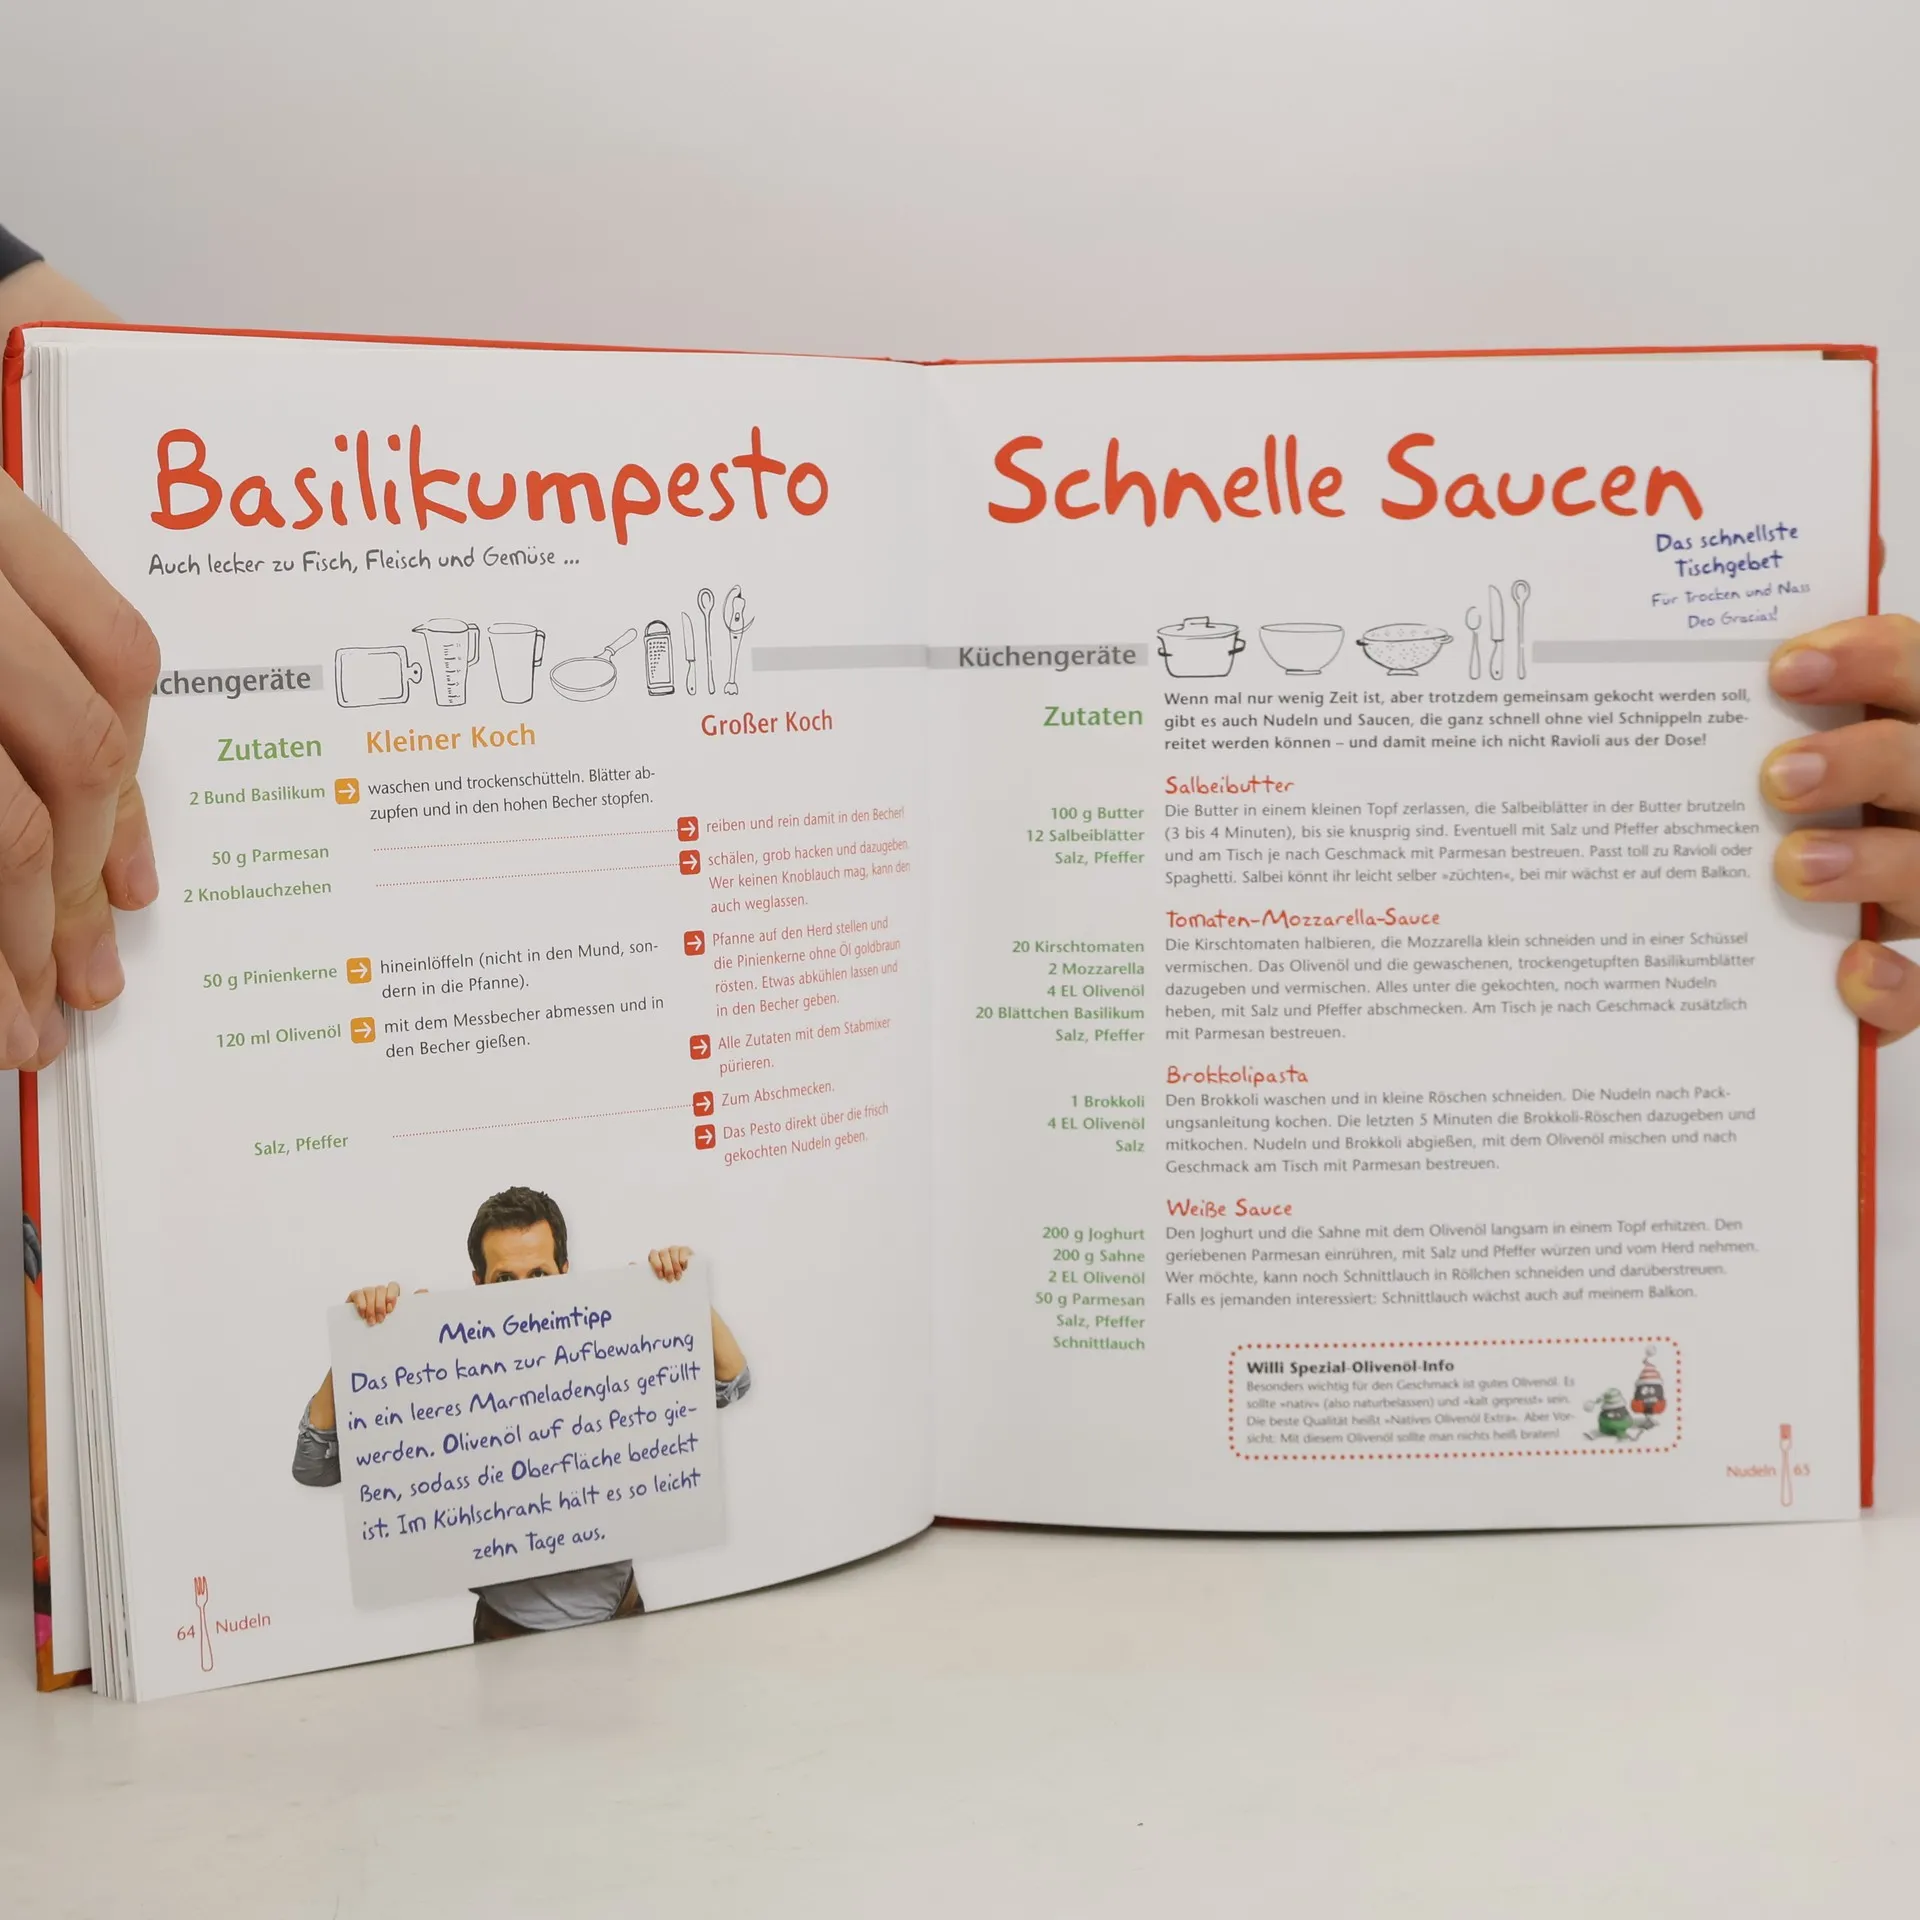 Basilikumpesto
Auch lecker zu Fisch, Fleisch und Gemüse ...
chengeräte
Zutaten
Kleiner Koch
Großer Koch
2 Bund Basilikum
waschen und trockenschütteln. Blätter ab-
zupfen und in den hohen Becher stopfen.
50 g Parmesan
reiben und rein damit in den Becher!
2 Knoblauchzehen
schälen, grob hacken und dazugeben.
Wer keinen Knoblauch mag, kann den
auch weglassen.
50 g Pinienkerne
hineinlöffeln (nicht in den Mund, son-
dern in die Pfanne).
Pfanne auf den Herd stellen und
die Pinienkerne ohne Öl goldbraun
rösten. Etwas abkühlen lassen und
in den Becher geben.
120 ml Olivenöl
mit dem Messbecher abmessen und in
den Becher gießen.
Alle Zutaten mit dem Stabmixer
pürieren.
Salz, Pfeffer
Zum Abschmecken.
Das Pesto direkt über die frisch
gekochten Nudeln geben.
Mein Geheimtipp
Das Pesto kann zur Aufbewahrung
in ein leeres Marmeladenglas gefüllt
werden. Olivenöl auf das Pesto gie-
ßen, sodass die Oberfläche bedeckt
ist. Im Kühlschrank hält es so leicht
zehn Tage aus.
64 Nudeln
Schnelle Saucen
Das schnellste
Tischgebet
Für Trocken und Nass
Deo Gracias!
Küchengeräte
Zutaten
Wenn mal nur wenig Zeit ist, aber trotzdem gemeinsam gekocht werden soll,
gibt es auch Nudeln und Saucen, die ganz schnell ohne viel Schnippeln zube-
reitet werden können – und damit meine ich nicht Ravioli aus der Dose!
Salbeibutter
100 g Butter
12 Salbeiblätter
Salz, Pfeffer
Die Butter in einem kleinen Topf zerlassen, die Salbeiblätter in der Butter brutzeln
(3 bis 4 Minuten), bis sie knusprig sind. Eventuell mit Salz und Pfeffer abschmecken
und am Tisch je nach Geschmack mit Parmesan bestreuen. Passt toll zu Ravioli oder
Spaghetti. Salbei könnt ihr leicht selber »züchten«, bei mir wächst er auf dem Balkon.
Tomaten-Mozzarella-Sauce
20 Kirschtomaten
2 Mozzarella
4 EL Olivenöl
20 Blättchen Basilikum
Salz, Pfeffer
Die Kirschtomaten halbieren, die Mozzarella klein schneiden und in einer Schüssel
vermischen. Das Olivenöl und die gewaschenen, trockengetupften Basilikumblätter
dazugeben und vermischen. Alles unter die gekochten, noch warmen Nudeln
heben, mit Salz und Pfeffer abschmecken. Am Tisch je nach Geschmack zusätzlich
mit Parmesan bestreuen.
Brokkolipasta
1 Brokkoli
4 EL Olivenöl
Salz
Den Brokkoli waschen und in kleine Röschen schneiden. Die Nudeln nach Pack-
ungsanleitung kochen. Die letzten 5 Minuten die Brokkoli-Röschen dazugeben und
mitkochen. Nudeln und Brokkoli abgießen, mit dem Olivenöl mischen und nach
Geschmack am Tisch mit Parmesan bestreuen.
Weiße Sauce
200 g Joghurt
200 g Sahne
2 EL Olivenöl
50 g Parmesan
Salz, Pfeffer
Schnittlauch
Den Joghurt und die Sahne mit dem Olivenöl langsam in einem Topf erhitzen. Den
geriebenen Parmesan einrühren, mit Salz und Pfeffer würzen und vom Herd nehmen.
Wer möchte, kann noch Schnittlauch in Röllchen schneiden und darüberstreuen.
Falls es jemanden interessiert: Schnittlauch wächst auch auf meinem Balkon.
Willi Spezial-Olivenöl-Info
Besonders wichtig für den Geschmack ist gutes Olivenöl. Es
sollte »nativ« (also naturbelassen) und »kalt gepresst« sein.
Die beste Qualität heißt »Natives Olivenöl Extra«. Aber Vor-
sicht: Mit diesem Olivenöl sollte man nichts heiß braten!
Nudeln 65